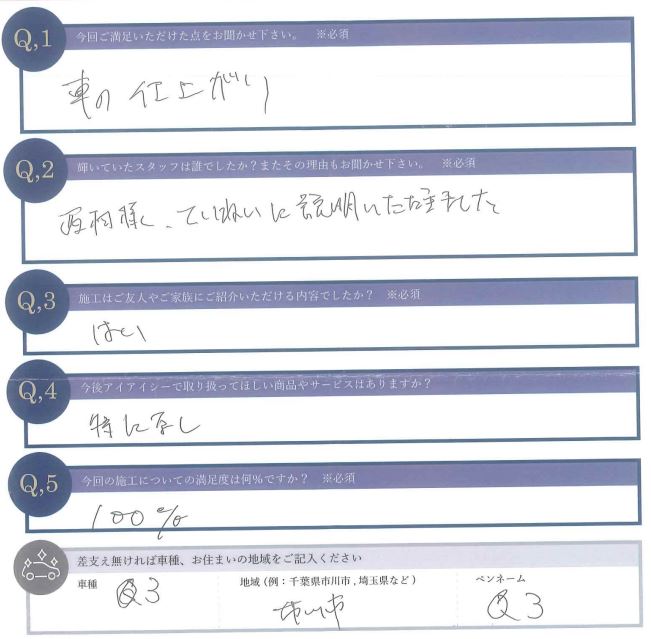 Q,1 今回ご満足いただけた点をお聞かせ下さい。 ※必須
車の仕上がり
Q,2 輝いていたスタッフは誰でしたか？またその理由もお聞かせ下さい。 ※必須
様、ていねいに説明いただきました
Q,3 施工はご友人やご家族にご紹介いただける内容でしたか？ ※必須
はい
Q,4 今後アイアイシーで取り扱ってほしい商品やサービスはありますか？
特になし
Q,5 今回の施工についての満足度は何％ですか？ ※必須
100%
差支え無ければ車種、お住まいの地域をご記入ください
車種 Q3 地域（例：千葉県市川市,埼玉県など） 市川市 ペンネーム Q3